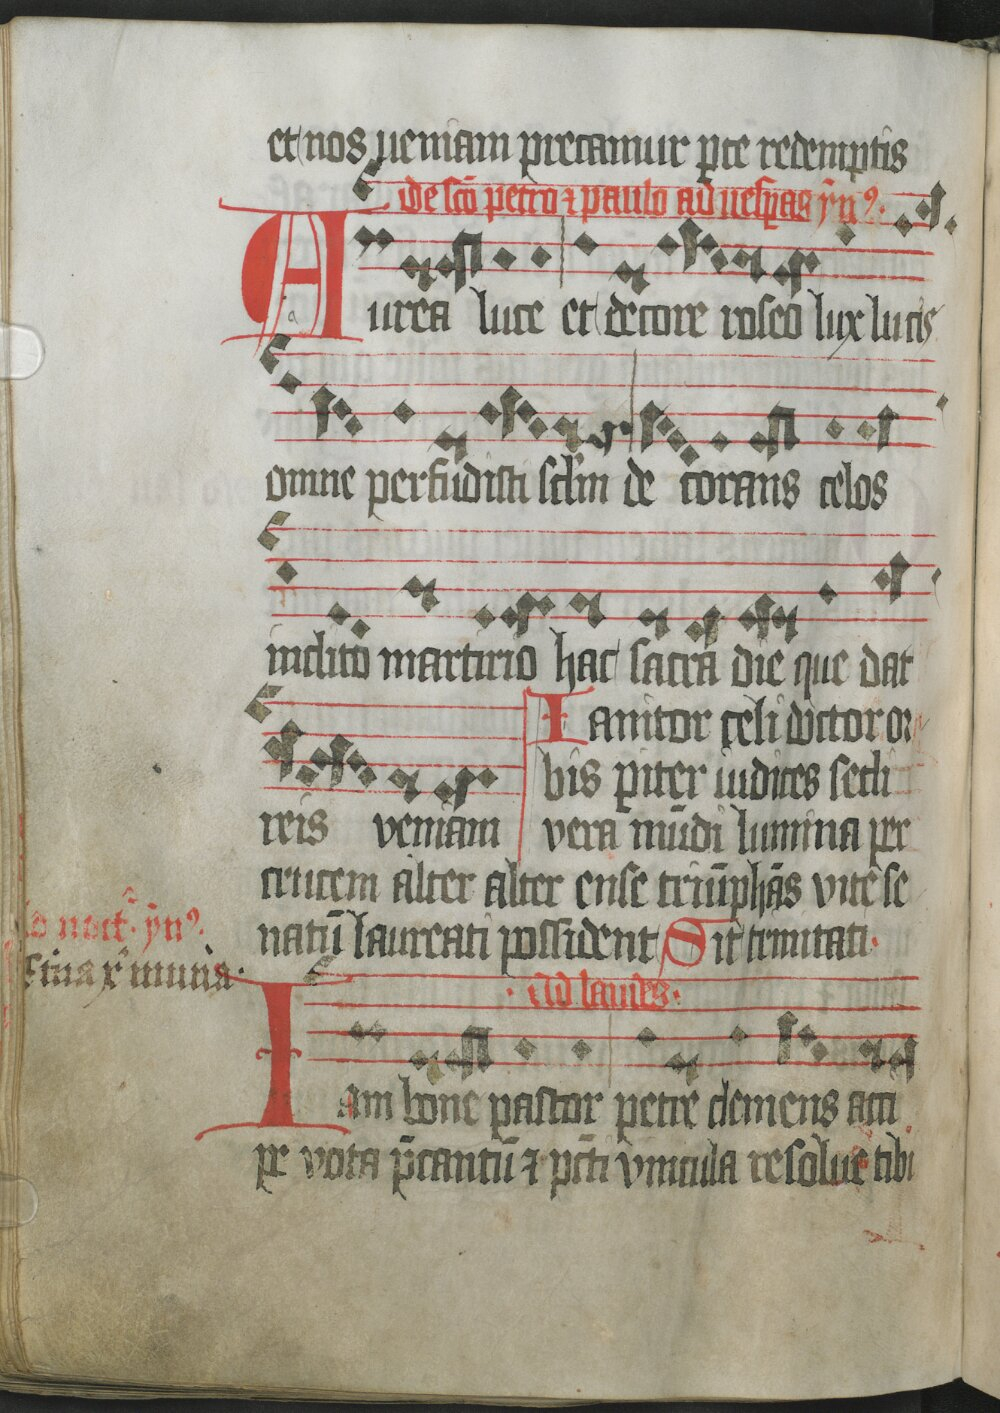 et nos ueniam precamur p̱re redemptis
de sc̄o petro ⁊ paulo ad uesp̱as ym̄ꝰ.
Aurea luce et decore roseo lux lucis
omne perfudisti scl̄m de corans celos
inclito martirio hac sacra die que dat
reis veniam
Ianitor celi doctor or
bis p̱iter iudices secli
vera mūdi lumina per
crucem alter alter ense triūphās vite se
natū laureati possident Sit trinitati.
Ad noct̄. ym̄ꝰ.
munia.
Ad laudes.
Iam bone pastor petre clemens acci
pe vota p̄cantū ⁊ pc̄ti vincula resolue tibi